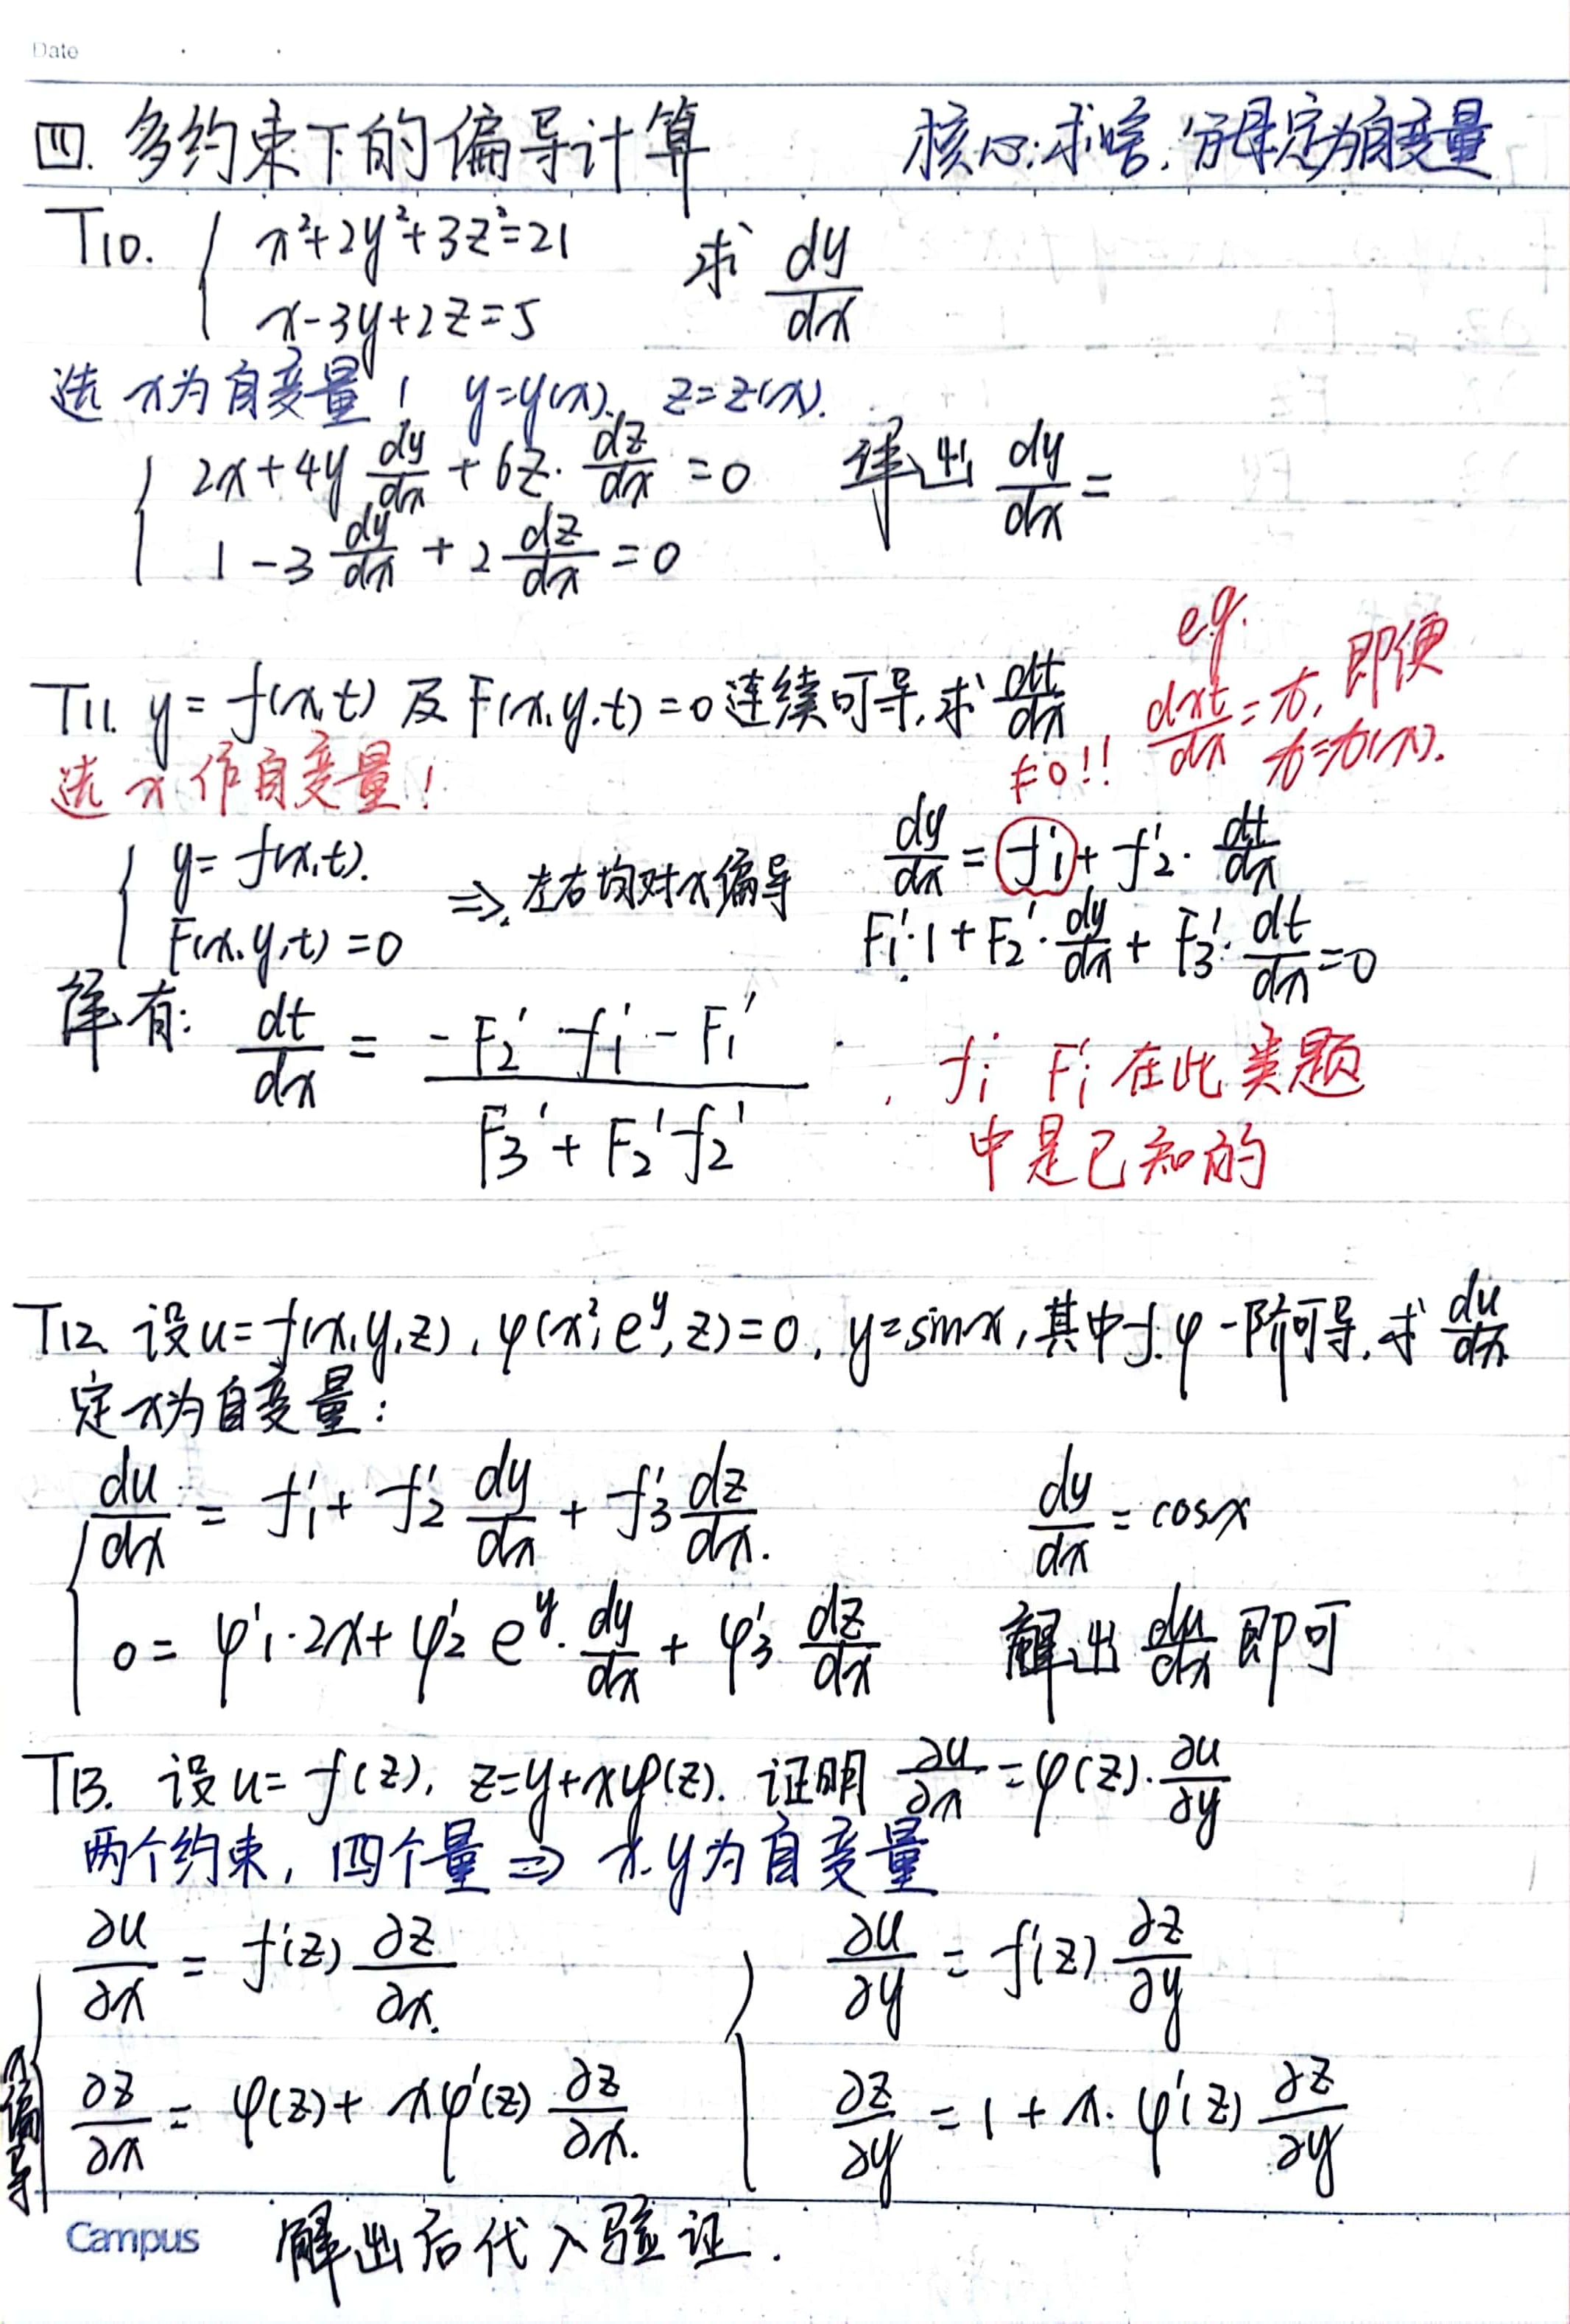 Date
四. 多约束下的偏导计算 核心:求啥,分母定为自变量
T10. { x²+2y²+3z²=21 求 dy/dx
x-3y+2z=5
选 x为自变量! y=y(x). z=z(x).
{ 2x+4y dy/dx + 6z· dz/dx =0 解出 dy/dx =
1-3 dy/dx + 2 dz/dx =0
e.g.
T11. y= f(x,t) 及 F(x,y,t)=0 连续可导,求 dt/dx
≠0!! dxt/dx = t, 即便 t=t(x).
选 x 作自变量!
{ y= f(x,t). ⇒ 左右均对x偏导 dy/dx = f₁' + f₂'· dt/dx
F(x,y,t)=0 F₁'·1 + F₂'· dy/dx + F₃'· dt/dx =0
解有: dt/dx = (-F₂'·f₁' - F₁')/(F₃' + F₂'f₂')
, fi' Fi' 在此类题
中是已知的
T12. 设u=f(x,y,z), φ(x²,e^y,z)=0, y=sinx,其中f.φ一阶可导,求 du/dx
定x为自变量:
{ du/dx = f₁' + f₂' dy/dx + f₃' dz/dx. dy/dx = cosx
0 = φ'₁·2x + φ₂' e^y· dy/dx + φ₃' dz/dx 解出 du/dx 即可
T13. 设 u= f(z), z=y+xφ(z). 证明 ∂u/∂x =φ(z)· ∂u/∂y
两个约束,四个量 ⇒ x.y为自变量
{ ∂u/∂x = f'(z) ∂z/∂x. { ∂u/∂y = f'(z) ∂z/∂y
x偏导 ∂z/∂x = φ(z)+ xφ'(z) ∂z/∂x. ∂z/∂y = 1 + x·φ'(z) ∂z/∂y
Campus 解出后代入验证.